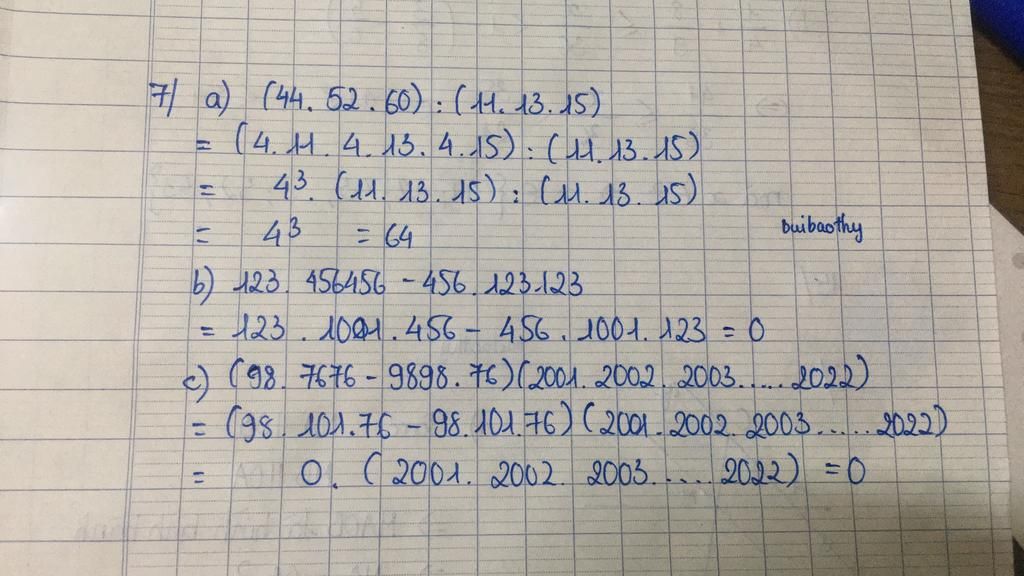 7/ a) (44. 52. 60) : (11. 13. 15)
= (4. 11. 4. 13. 4. 15) : (11. 13. 15)
= 4³. (11. 13. 15) : (11. 13. 15)
= 4³ = 64
buibaothy
b) 123. 456456 - 456. 123123
= 123. 1001. 456 - 456. 1001. 123 = 0
c) (98. 7676 - 9898. 76)(2001. 2002. 2003..... 2022)
= (98. 101. 76 - 98. 101. 76)(2001. 2002. 2003...... 2022)
= 0. (2001. 2002. 2003..... 2022) = 0